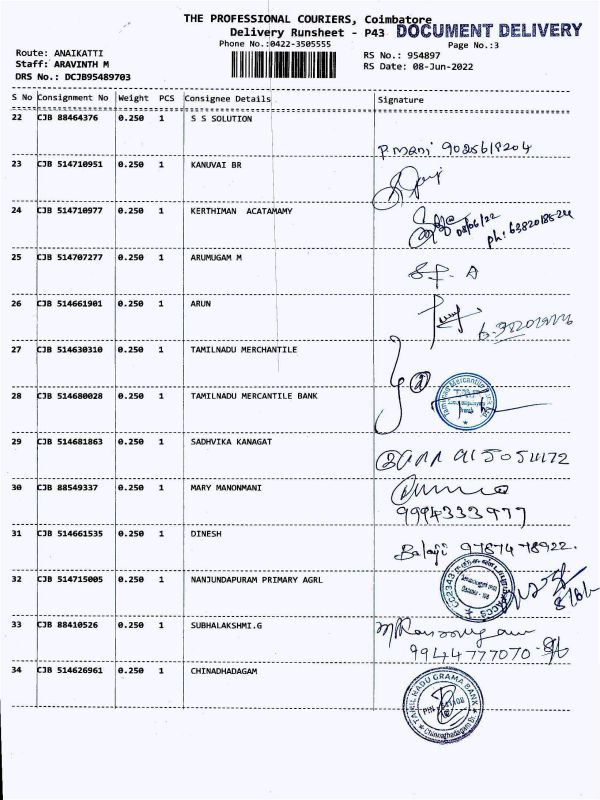 THE PROFESSIONAL COURIERS, Coimbatore
Delivery Runsheet - P43 DOCUMENT DELIVERY
Phone No.:0422-3505555 Page No.:3
Route: ANAIKATTI RS No.: 954897
Staff: ARAVINTH M RS Date: 08-Jun-2022
DRS No.: DCJB95489703
S No Consignment No Weight PCS Consignee Details Signature
22 CJB 88464376 0.250 1 S S SOLUTION
P. Mani 9025618204
23 CJB 514710951 0.250 1 KANUVAI BR
24 CJB 514710977 0.250 1 KERTHIMAN ACATAMAMY
08/06/22 ph:
25 CJB 514707277 0.250 1 ARUMUGAM M
26 CJB 514661901 0.250 1 ARUN
27 CJB 514630310 0.250 1 TAMILNADU MERCHANTILE
28 CJB 514680028 0.250 1 TAMILNADU MERCANTILE BANK
29 CJB 514681863 0.250 1 SADHVIKA KANAGAT
30 CJB 88549337 0.250 1 MARY MANONMANI
9994333977
31 CJB 514661535 0.250 1 DINESH
Balaji 97874 78922.
32 CJB 514715005 0.250 1 NANJUNDAPURAM PRIMARY AGRL
33 CJB 88410526 0.250 1 SUBHALAKSHMI.G
99444777070
34 CJB 514626961 0.250 1 CHINADHADAGAM
TAMIL NADU GRAMA BANK